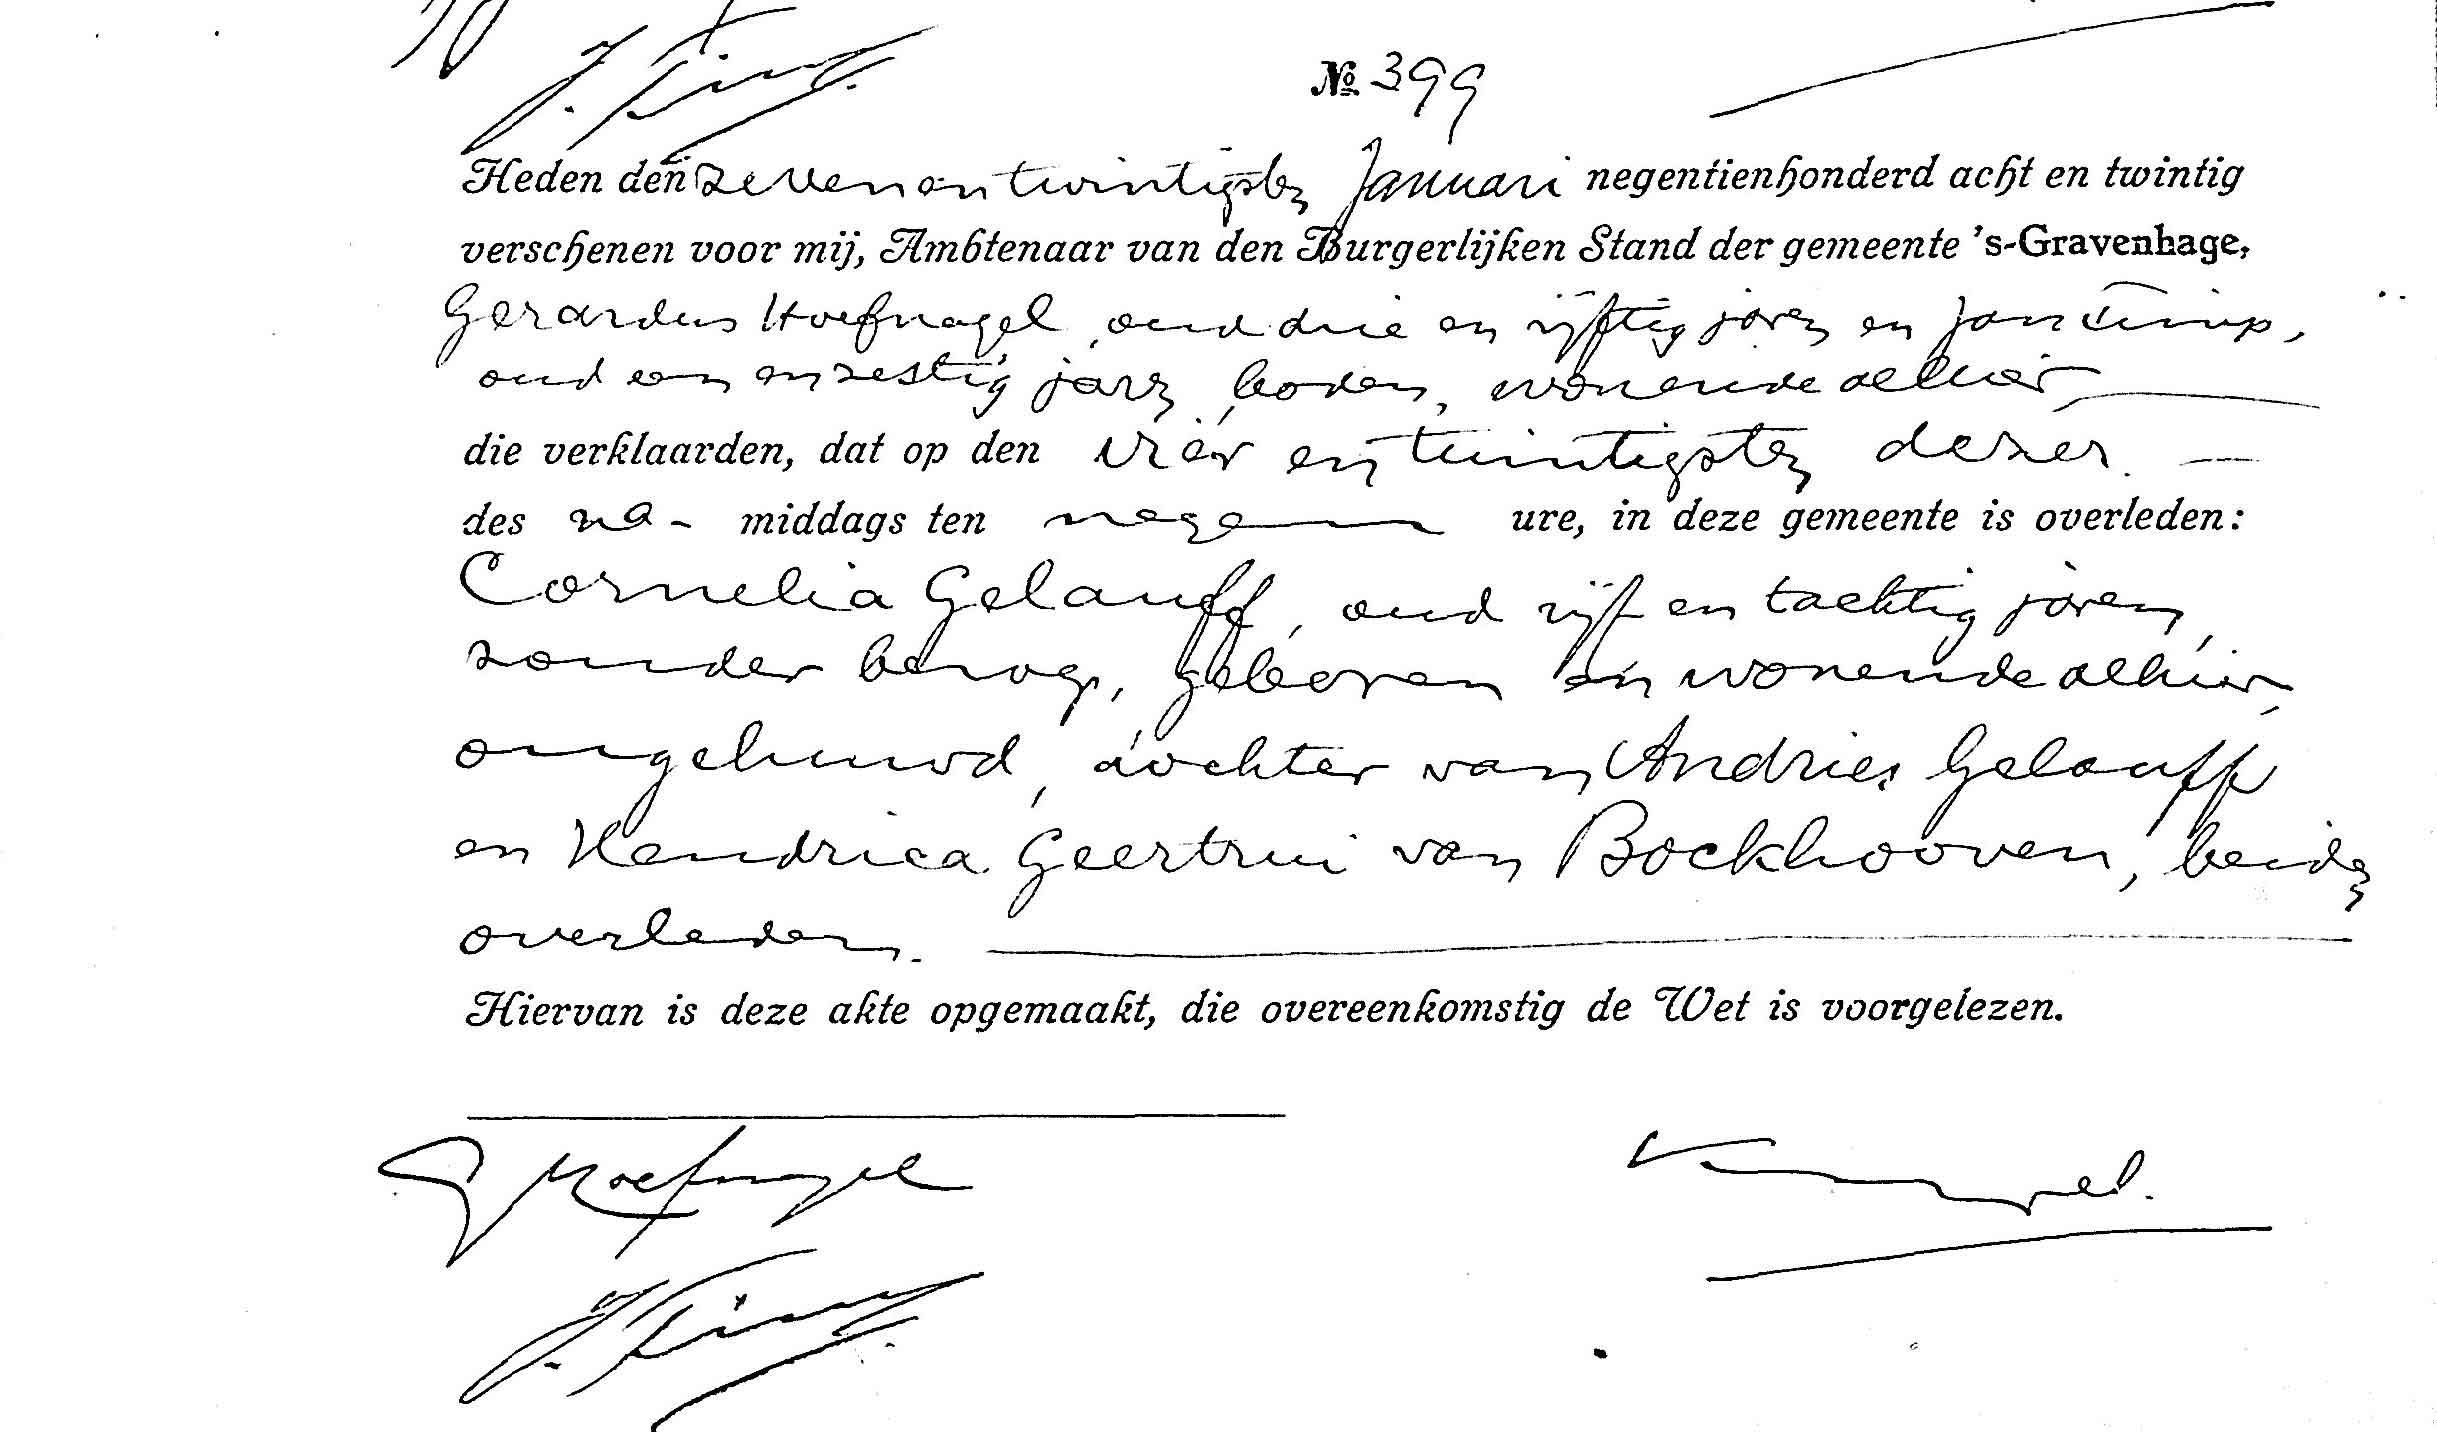 № 399
Heden den zeven en twintigsten Januari negentienhonderd acht en twintig
verschenen voor mij, Ambtenaar van den Burgerlijken Stand der gemeente 's-Gravenhage,
Gerardus Hoefnagel, oud drie en vijftig jaren en Jan
oud een en zestig jaren, boden, wonende alhier
die verklaarden, dat op den vier en twintigsten dezer
des na- middags ten negen ure, in deze gemeente is overleden:
Cornelia Gelauff, oud vijf en tachtig jaren,
zonder beroep, geboren en wonende alhier,
ongehuwd, dochter van Andries Gelauff
en Hendrica Geertrui van Bockhooven, beiden
overleden.
Hiervan is deze akte opgemaakt, die overeenkomstig de Wet is voorgelezen.
G Hoefnagel